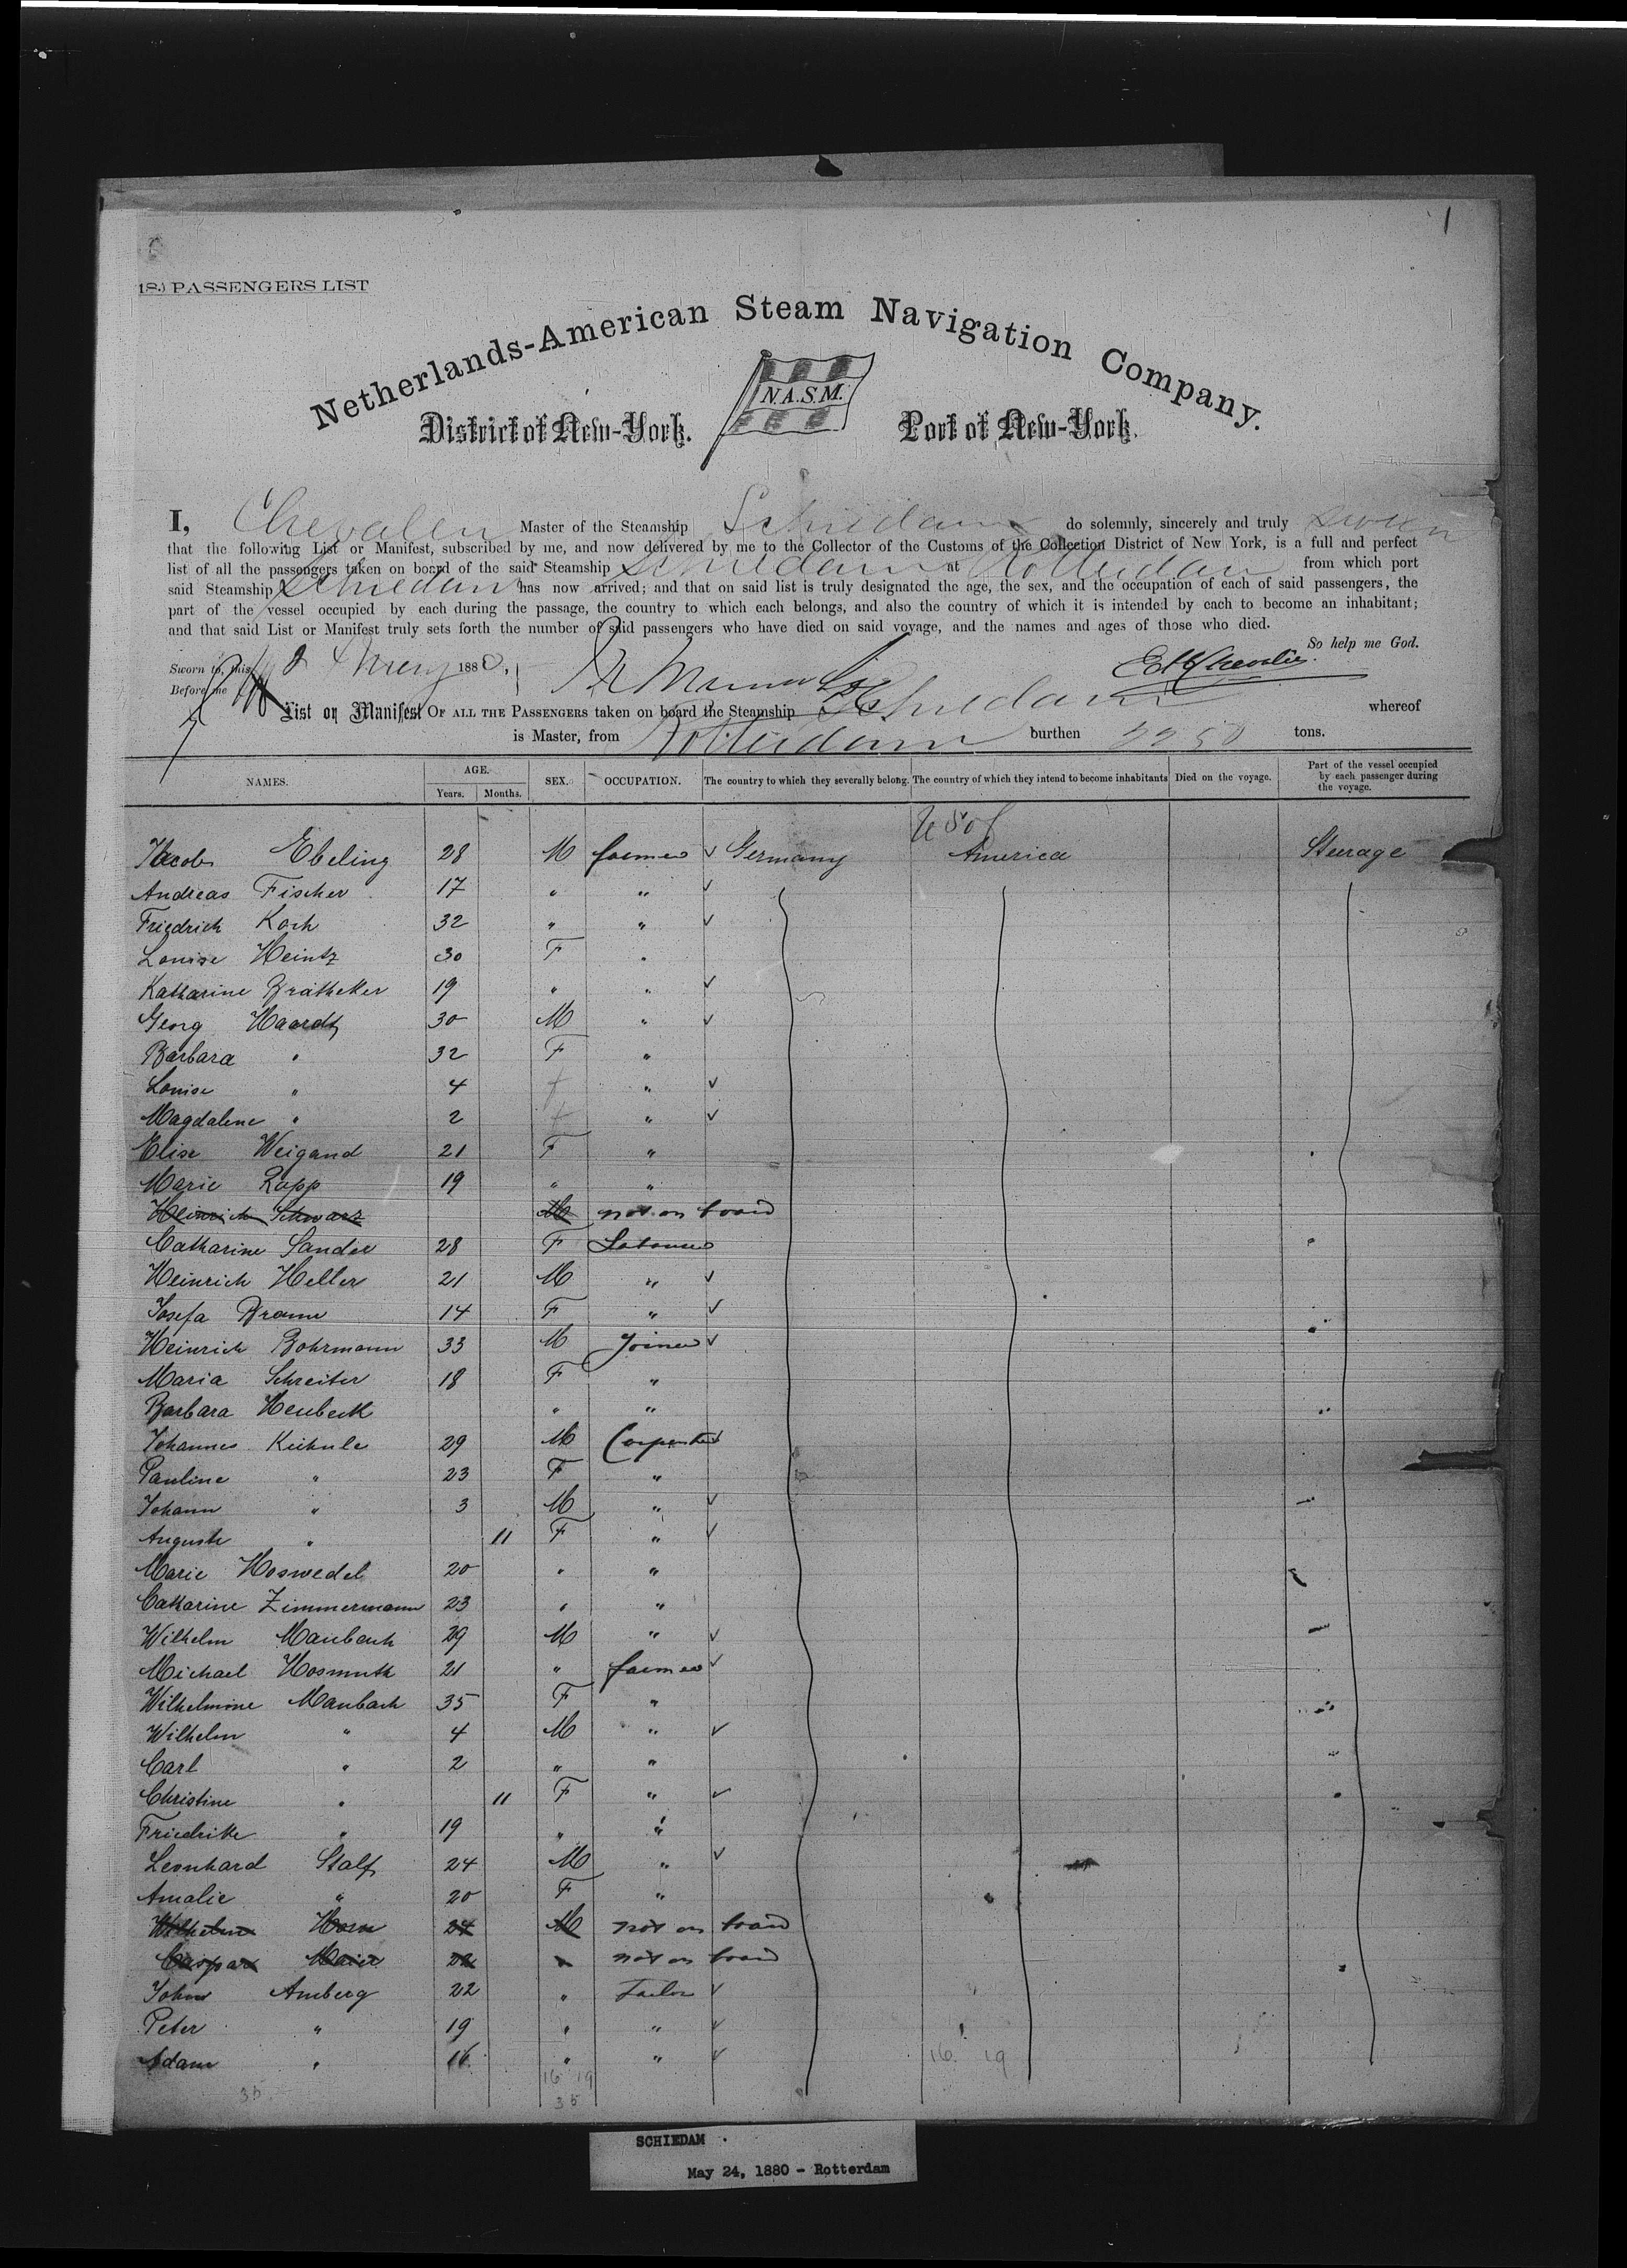 1
18.) PASSENGERS LIST
Netherlands-American Steam Navigation Company.
N.A.S.M.
District of New-York. Port of New-York.
I, Chevalier Master of the Steamship Schiedam do solemnly, sincerely and truly swear
that the following List or Manifest, subscribed by me, and now delivered by me to the Collector of the Customs of the Collection District of New York, is a full and perfect
list of all the passengers taken on board of the said Steamship Schiedam at Rotterdam from which port
said Steamship Schiedam has now arrived; and that on said list is truly designated the age, the sex, and the occupation of each of said passengers, the
part of the vessel occupied by each during the passage, the country to which each belongs, and also the country of which it is intended by each to become an inhabitant;
and that said List or Manifest truly sets forth the number of said passengers who have died on said voyage, and the names and ages of those who died.
So help me God.
Sworn to, this May 1880,
Before me
List or Manifest OF ALL THE PASSENGERS taken on board the Steamship Schiedam whereof
is Master, from Rotterdam burthen 2250 tons.
NAMES. AGE. Years. Months. SEX. OCCUPATION. The country to which they severally belong. The country of which they intend to become inhabitants Died on the voyage. Part of the vessel occupied by each passenger during the voyage.
U S of
Jacob Ebeling 28 M farmer Germany America Steerage
Andreas Fischer 17 " "
Friedrich Koch 32 " "
Louise Heintz 30 F "
Katharine 19 " "
Georg Haardt 30 M "
Barbara " 32 F "
Louise " 4 f "
Magdalene " 2 f "
Elise Weigand 21 F "
Marie Rapp 19 " "
Heinrich Schwarz M not on board
Catharine Sander 28 F Labourer
Heinrich Heller 21 M "
Josefa Braun 14 F "
Heinrich Bohrmann 33 M Joiner
Maria Schreiter 18 F "
Barbara Heubeck " "
Johannes Kühnle 29 M Carpenter
Pauline " 23 F "
Johann " 3 M "
Auguste " 11 F "
Marie Hoswedel 20 " "
Catharine Zimmermann 23 " "
Wilhelm Maubach 29 M "
Michael Hosmuth 21 " farmer
Wilhelmine Maubach 35 F "
Wilhelm " 4 M "
Carl " 2 " "
Christine " 11 F "
Friedrike " 19 " "
Leonhard Stalf 24 M "
Amalie " 20 F "
Wilhelm Horn 24 M not on board
Caspar Maier 22 " not on board
John Amberg 22 " Tailor
Peter " 19 " "
Adam " 16 " "
16 19 16 19
35 35
SCHIEDAM
May 24, 1880 - Rotterdam